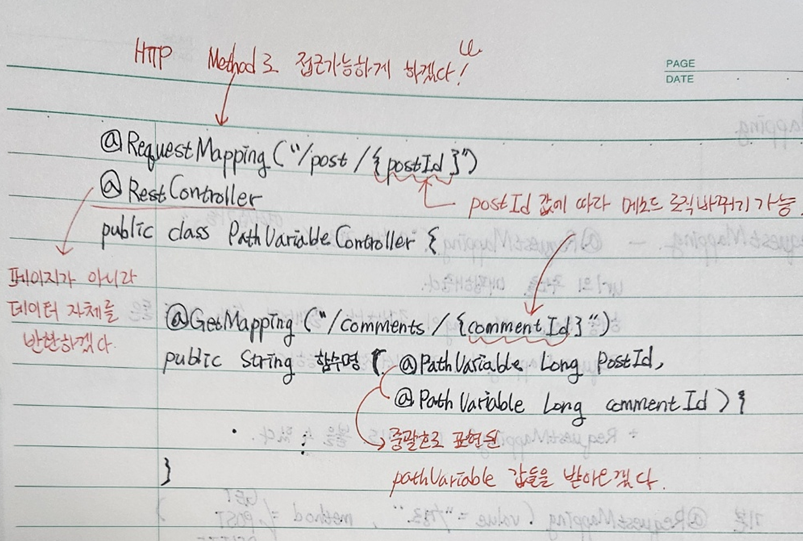 HTTP Method로 접근가능하게 하겠다!
PAGE
DATE
@RequestMapping("/post/{postId}")
@RestController
postId 값에 따라 메소드 로직바꾸기 가능.
public class PathVariableController {
페이지가 아니라
데이터 자체를
반환하겠다.
@GetMapping("/comments/{commentId}")
public String 함수명 ( @PathVariable Long PostId,
@PathVariable Long commentId ) {
중괄호로 표현된
pathVariable 값들을 받아오겠다.
}